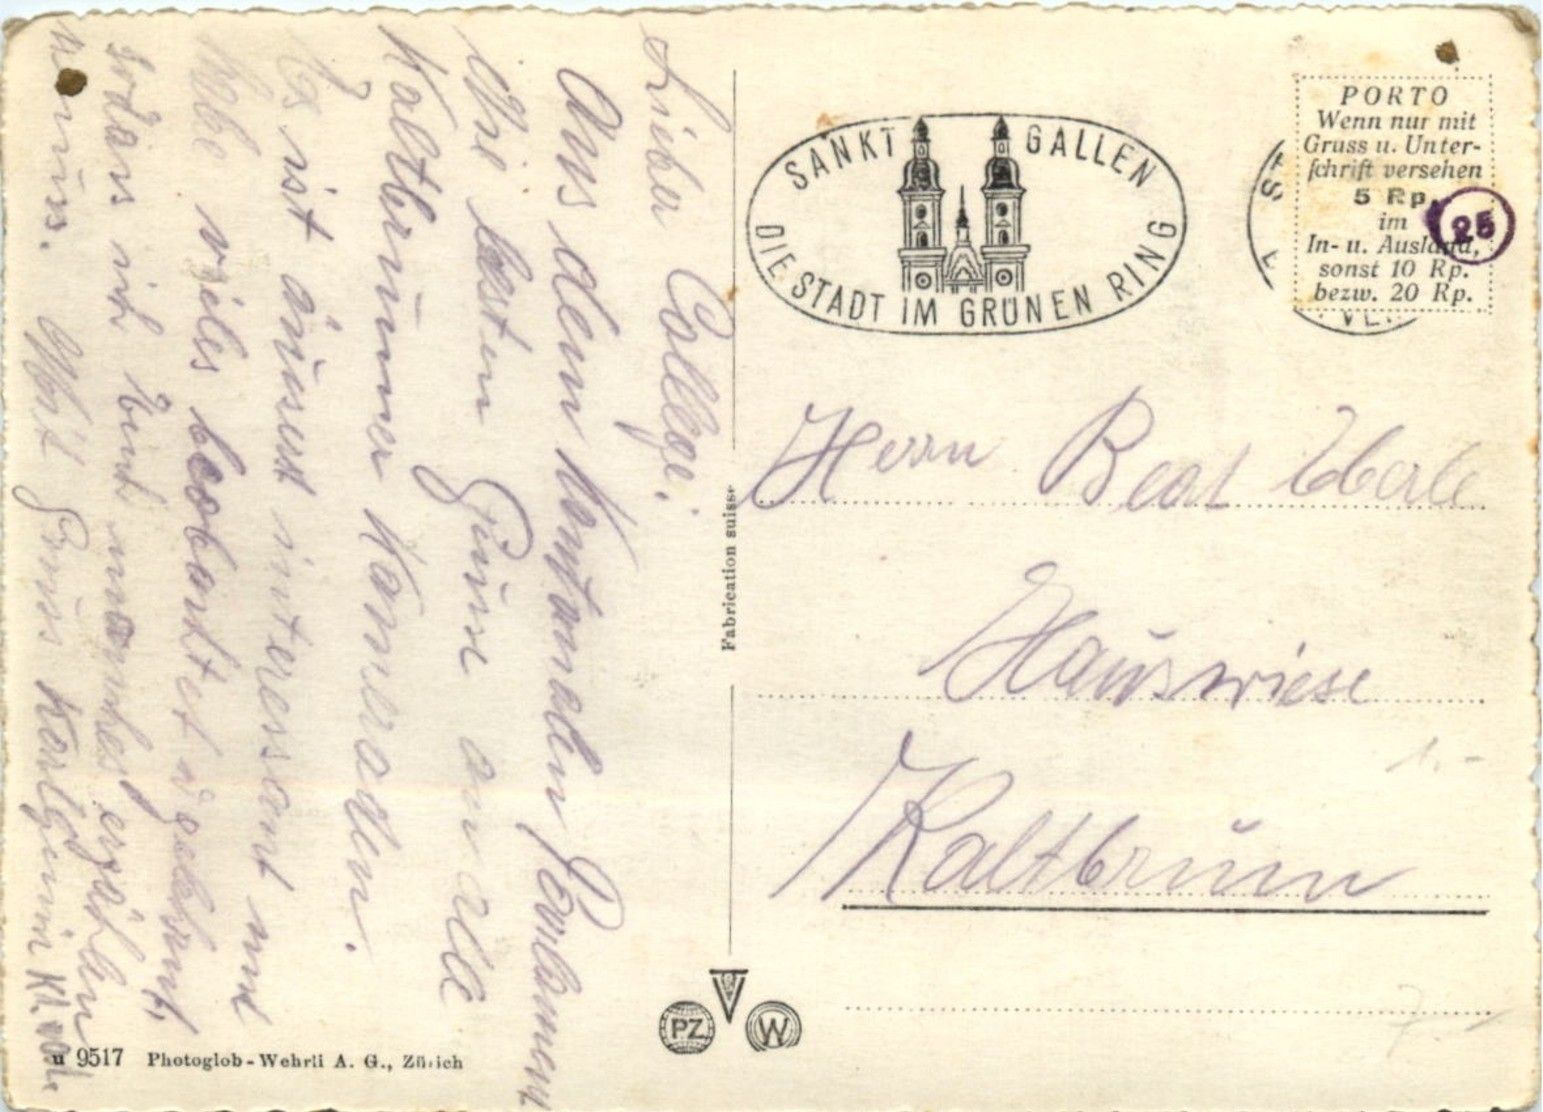 Lieber Collega.
Aus dem kantonalen Parlament
die besten Grüsse an alle
Kaltbrunner Kameraden.
Es ist äusserst interessant und
habe vieles beobachtet u. gelernt,
sodass ich Euch manches erzählen
muss. Mit Gruss
u 9517 Photoglob-Wehrli A. G., Zürich
Fabrication suisse
PZ
W
SANKT GALLEN
DIE STADT IM GRÜNEN RING
PORTO
Wenn nur mit
Gruss u. Unter-
schrift versehen
5 Rp.
im
In- u. Ausland,
sonst 10 Rp.
bezw. 20 Rp.
25
Herrn Beat Eberle
Hauswiese
Kaltbrunn